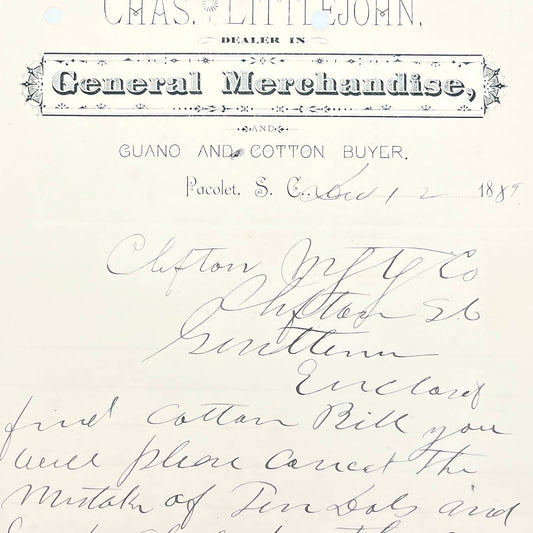 CHAS. LITTLEJOHN,
DEALER IN
General Merchandise,
AND
GUANO AND COTTON BUYER.
Pacolet, S. C., Dec 12 1889.
Clifton Mfg Co
Clifton SC
Gentlemen
Enclosed
find Cotton Bill you
will please Correct the
Mistake of Ten Dols and